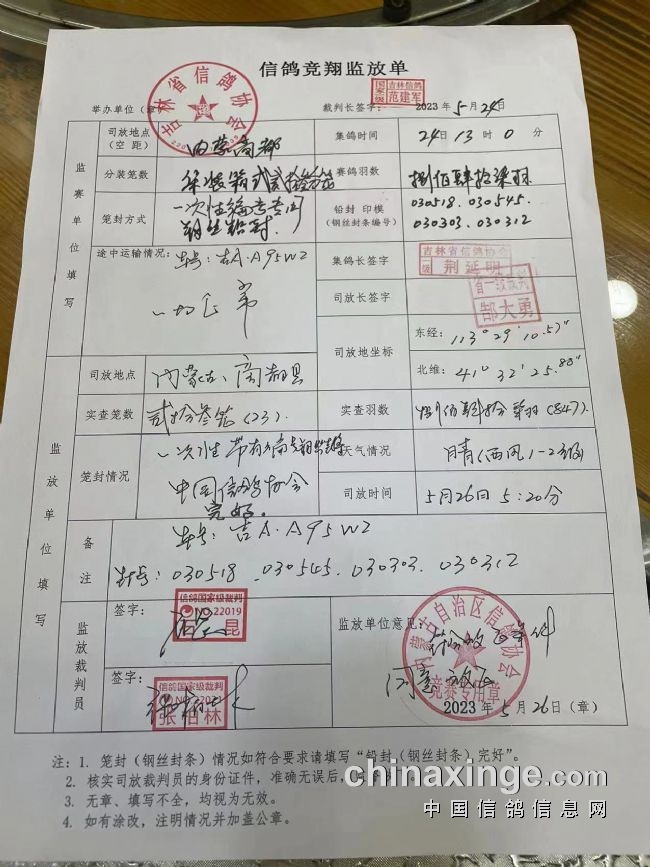 信鸽竞翔监放单
吉林省信鸽协会
国家级 吉林信鸽 范建军
举办单位（章） 裁判长签字： 2023年5月24日
监赛单位填写
司放地点（空 距） 内蒙商都 集鸽时间 24日13时0分
分装笼数 赛鸽羽数 捌佰肆拾柒羽
笼封方式 一次性编号专用 铅封 印模（钢丝封条编号） 030518.030545.
030303.030312
途中运输情况： 车号：吉A·A95W2
一切正常
集鸽长签字 吉林省信鸽协会 荆延明
司放长签字 省一级裁判 郜大勇
司放地坐标 东经：113°29′10.57″
北维：41°32′25.88″
监放单位填写
司放地点 内蒙古商都县
实查笼数 贰拾叁笼(23). 实查羽数 捌佰肆拾柒羽(847).
笼封情况 一次性带有
中国信鸽协会
完好.
天气情况 晴(西风1-2级)
司放时间 5月26日5:20分
备注 车号：吉A·A95W2
封号：030518.030545.030303.030312
监放裁判员
签字： 信鸽国家级裁判 NO.22019
签字： 信鸽国家级裁判 张柏林
监放单位意见：
内蒙古自治区信鸽协会
竞赛专用章
2023年5月26日（章）
注：1. 笼封（钢丝封条）情况如符合要求请填写“铅封（钢丝封条）完好”。
2. 核实司放裁判员的身份证件，准确无误后，
3. 无章、填写不全，均视为无效。
4. 如有涂改，注明情况并加盖公章。
chinaxinge.com
中国信鸽信息网